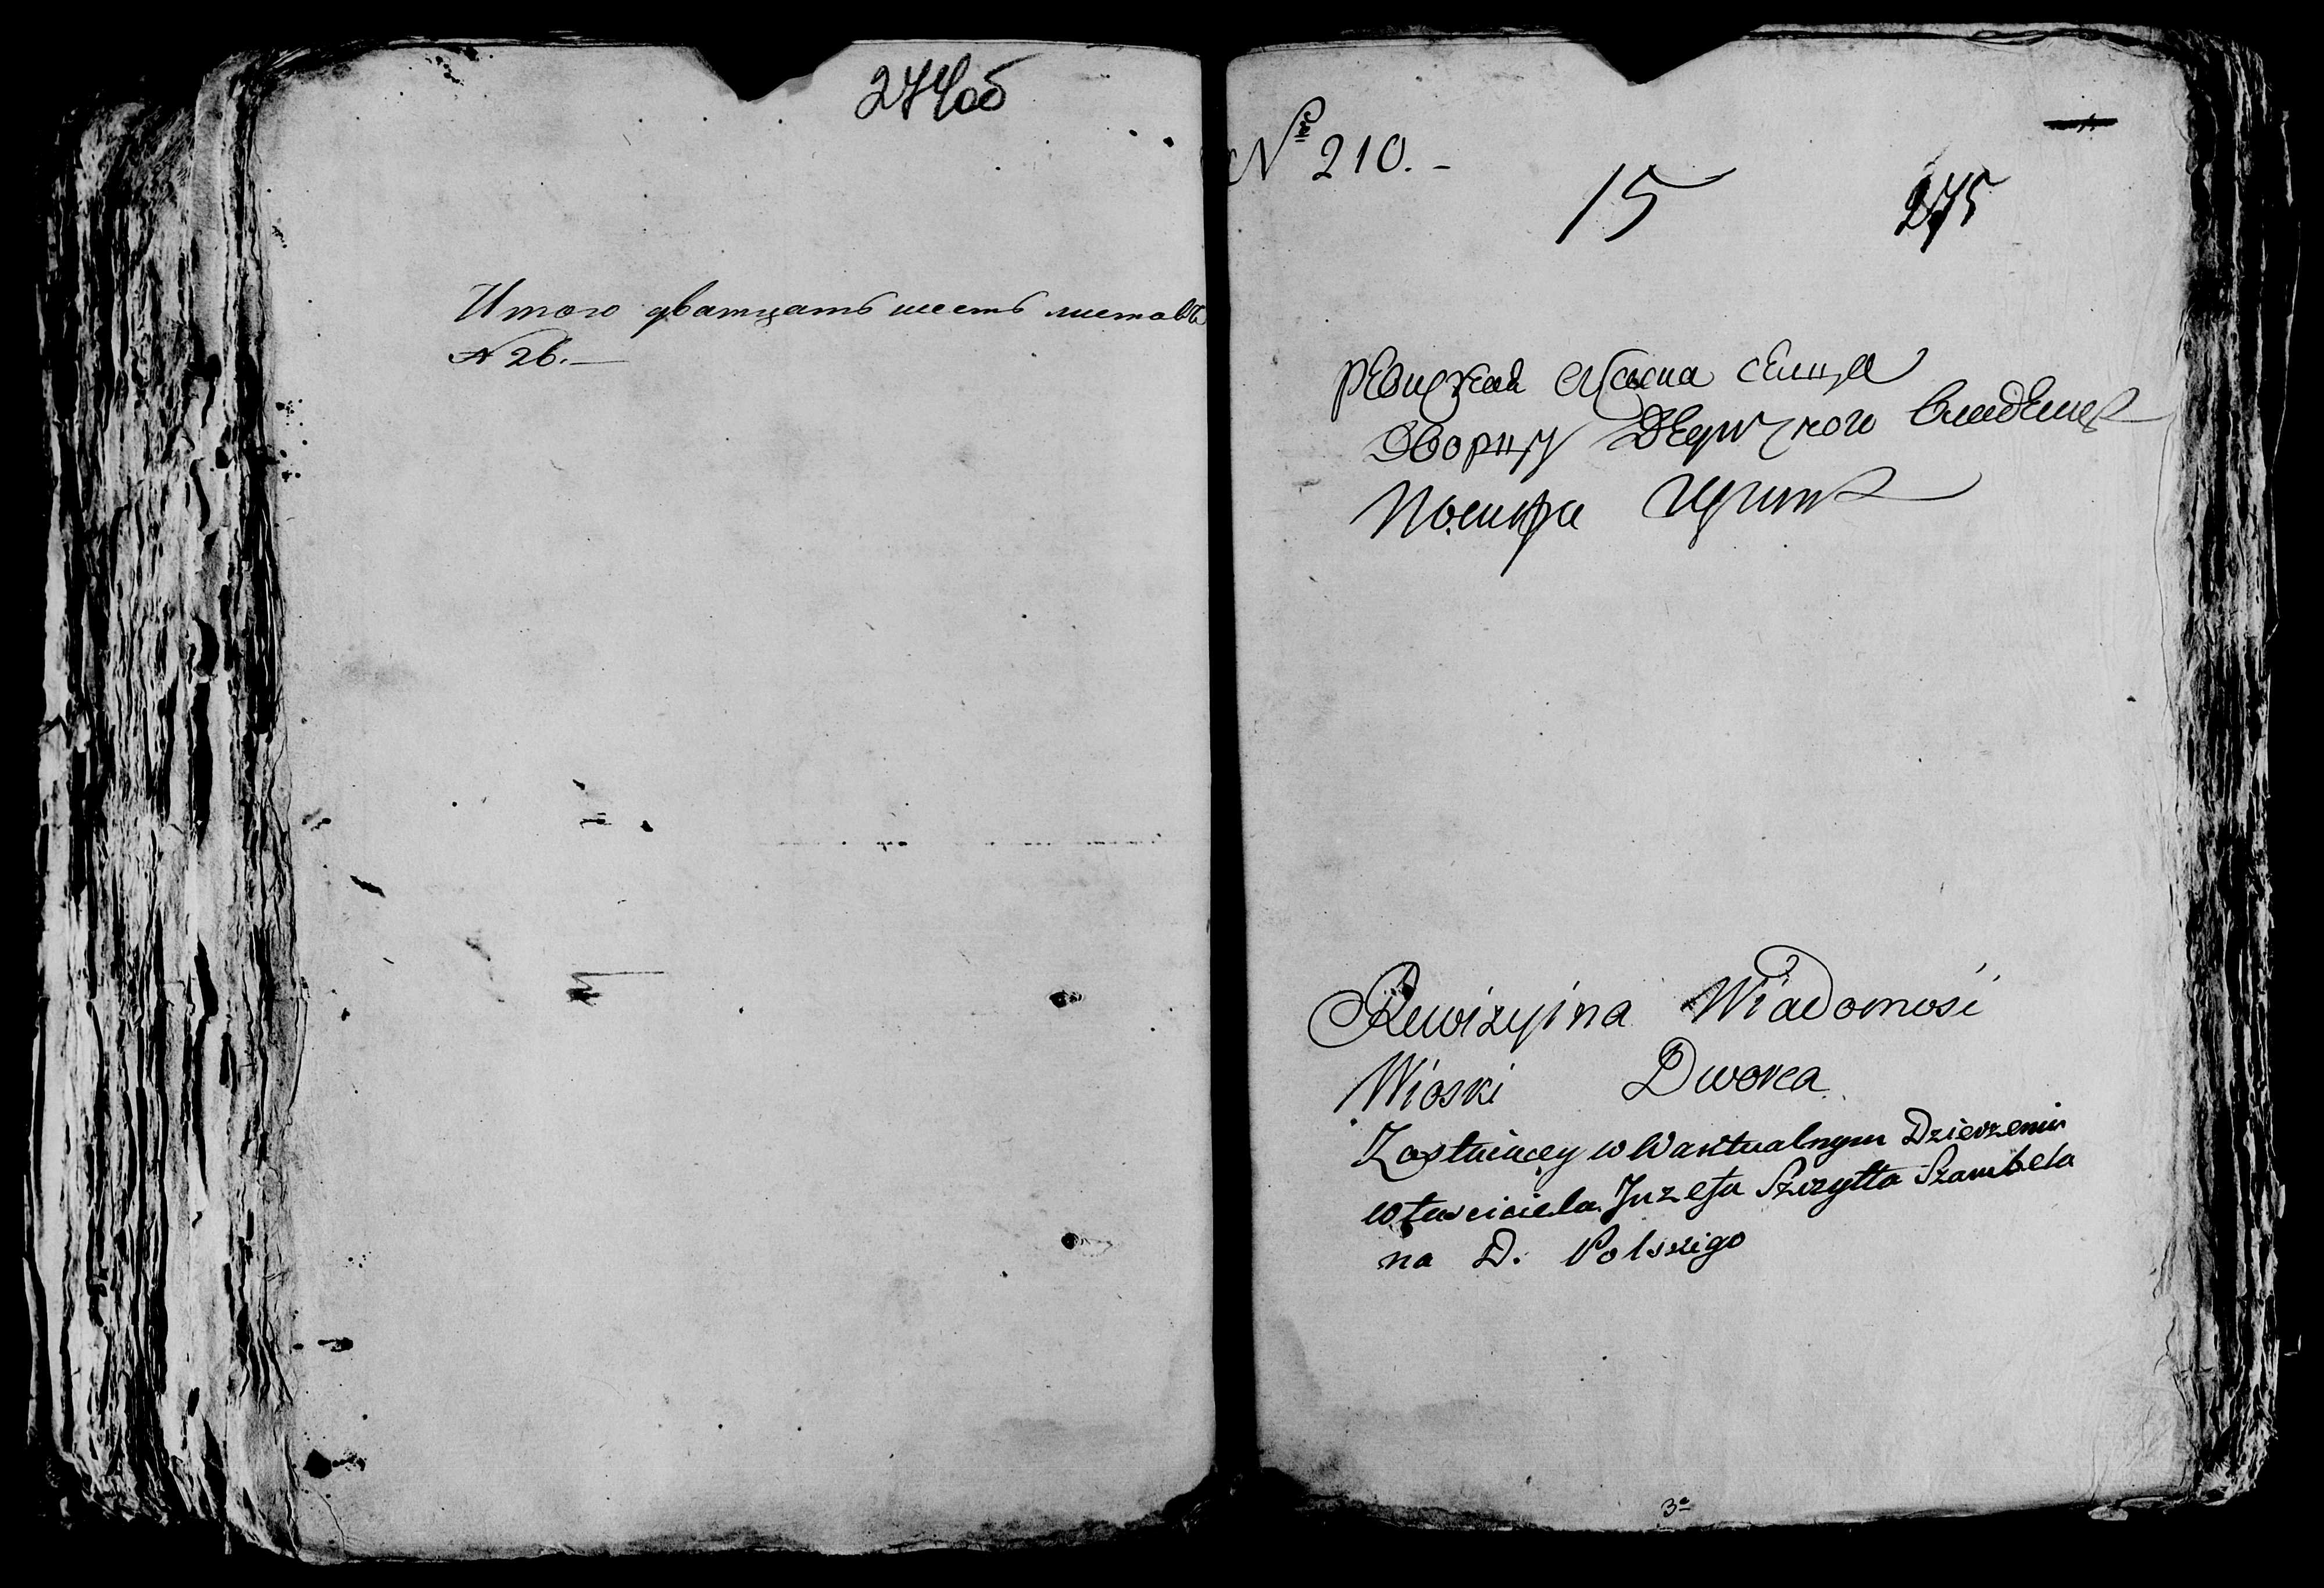 274об
Итого дватцать шесть листовъ
№ 26.—
№ 210.-
15
275
Ревизкая скаска сельца
Дворцу
Иосифа Щита
Rewizyina Wiadomość
Wioski Dworca
Zostaiącey w Waktualnym Dzierżeniu
właściciela Juzefa Szczytta Szambela
na D. Polskigo
3е